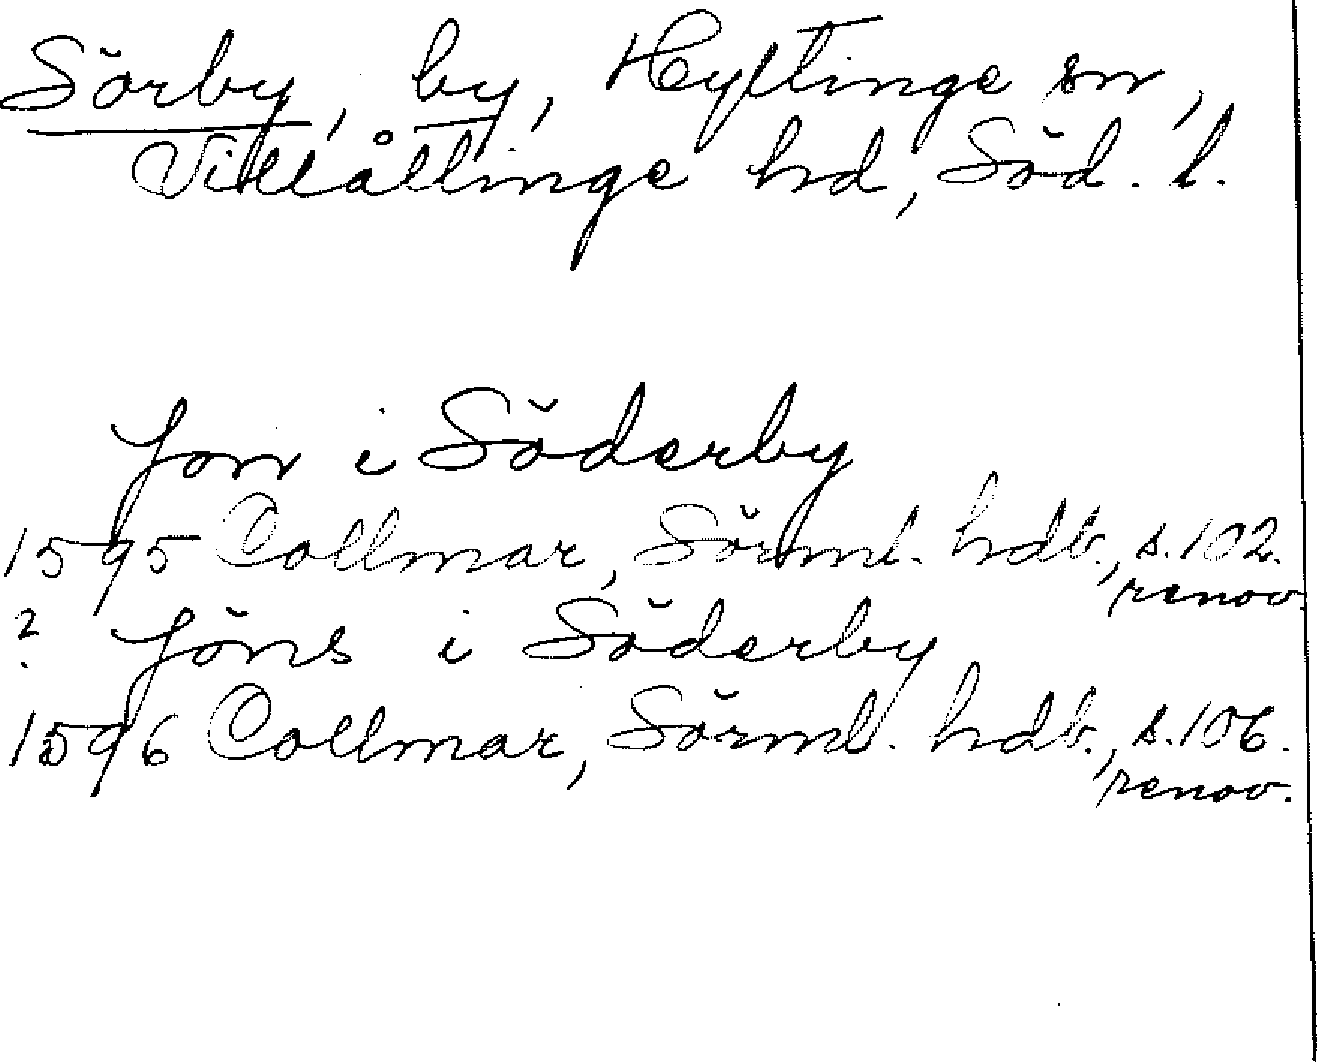 Sörby, by, Hyltinge sn,
Villåttinge hd, Söd. l.
Jon i Söderby
1595 Collmar, Sörml. hdb., s. 102.
renov.
? Jöns i Söderby
1596 Collmar, Sörml. hdb., s. 106.
renov.